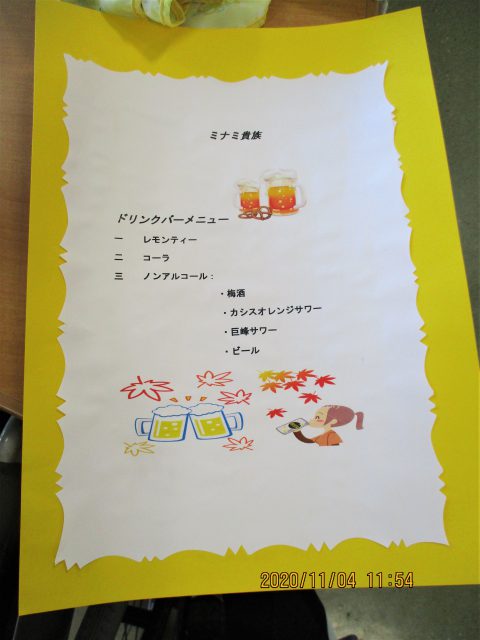 ミナミ貴族
ドリンクバーメニュー
一 レモンティー
二 コーラ
三 ノンアルコール：
・梅酒
・カシスオレンジサワー
・巨峰サワー
・ビール
2020/11/04 11:54